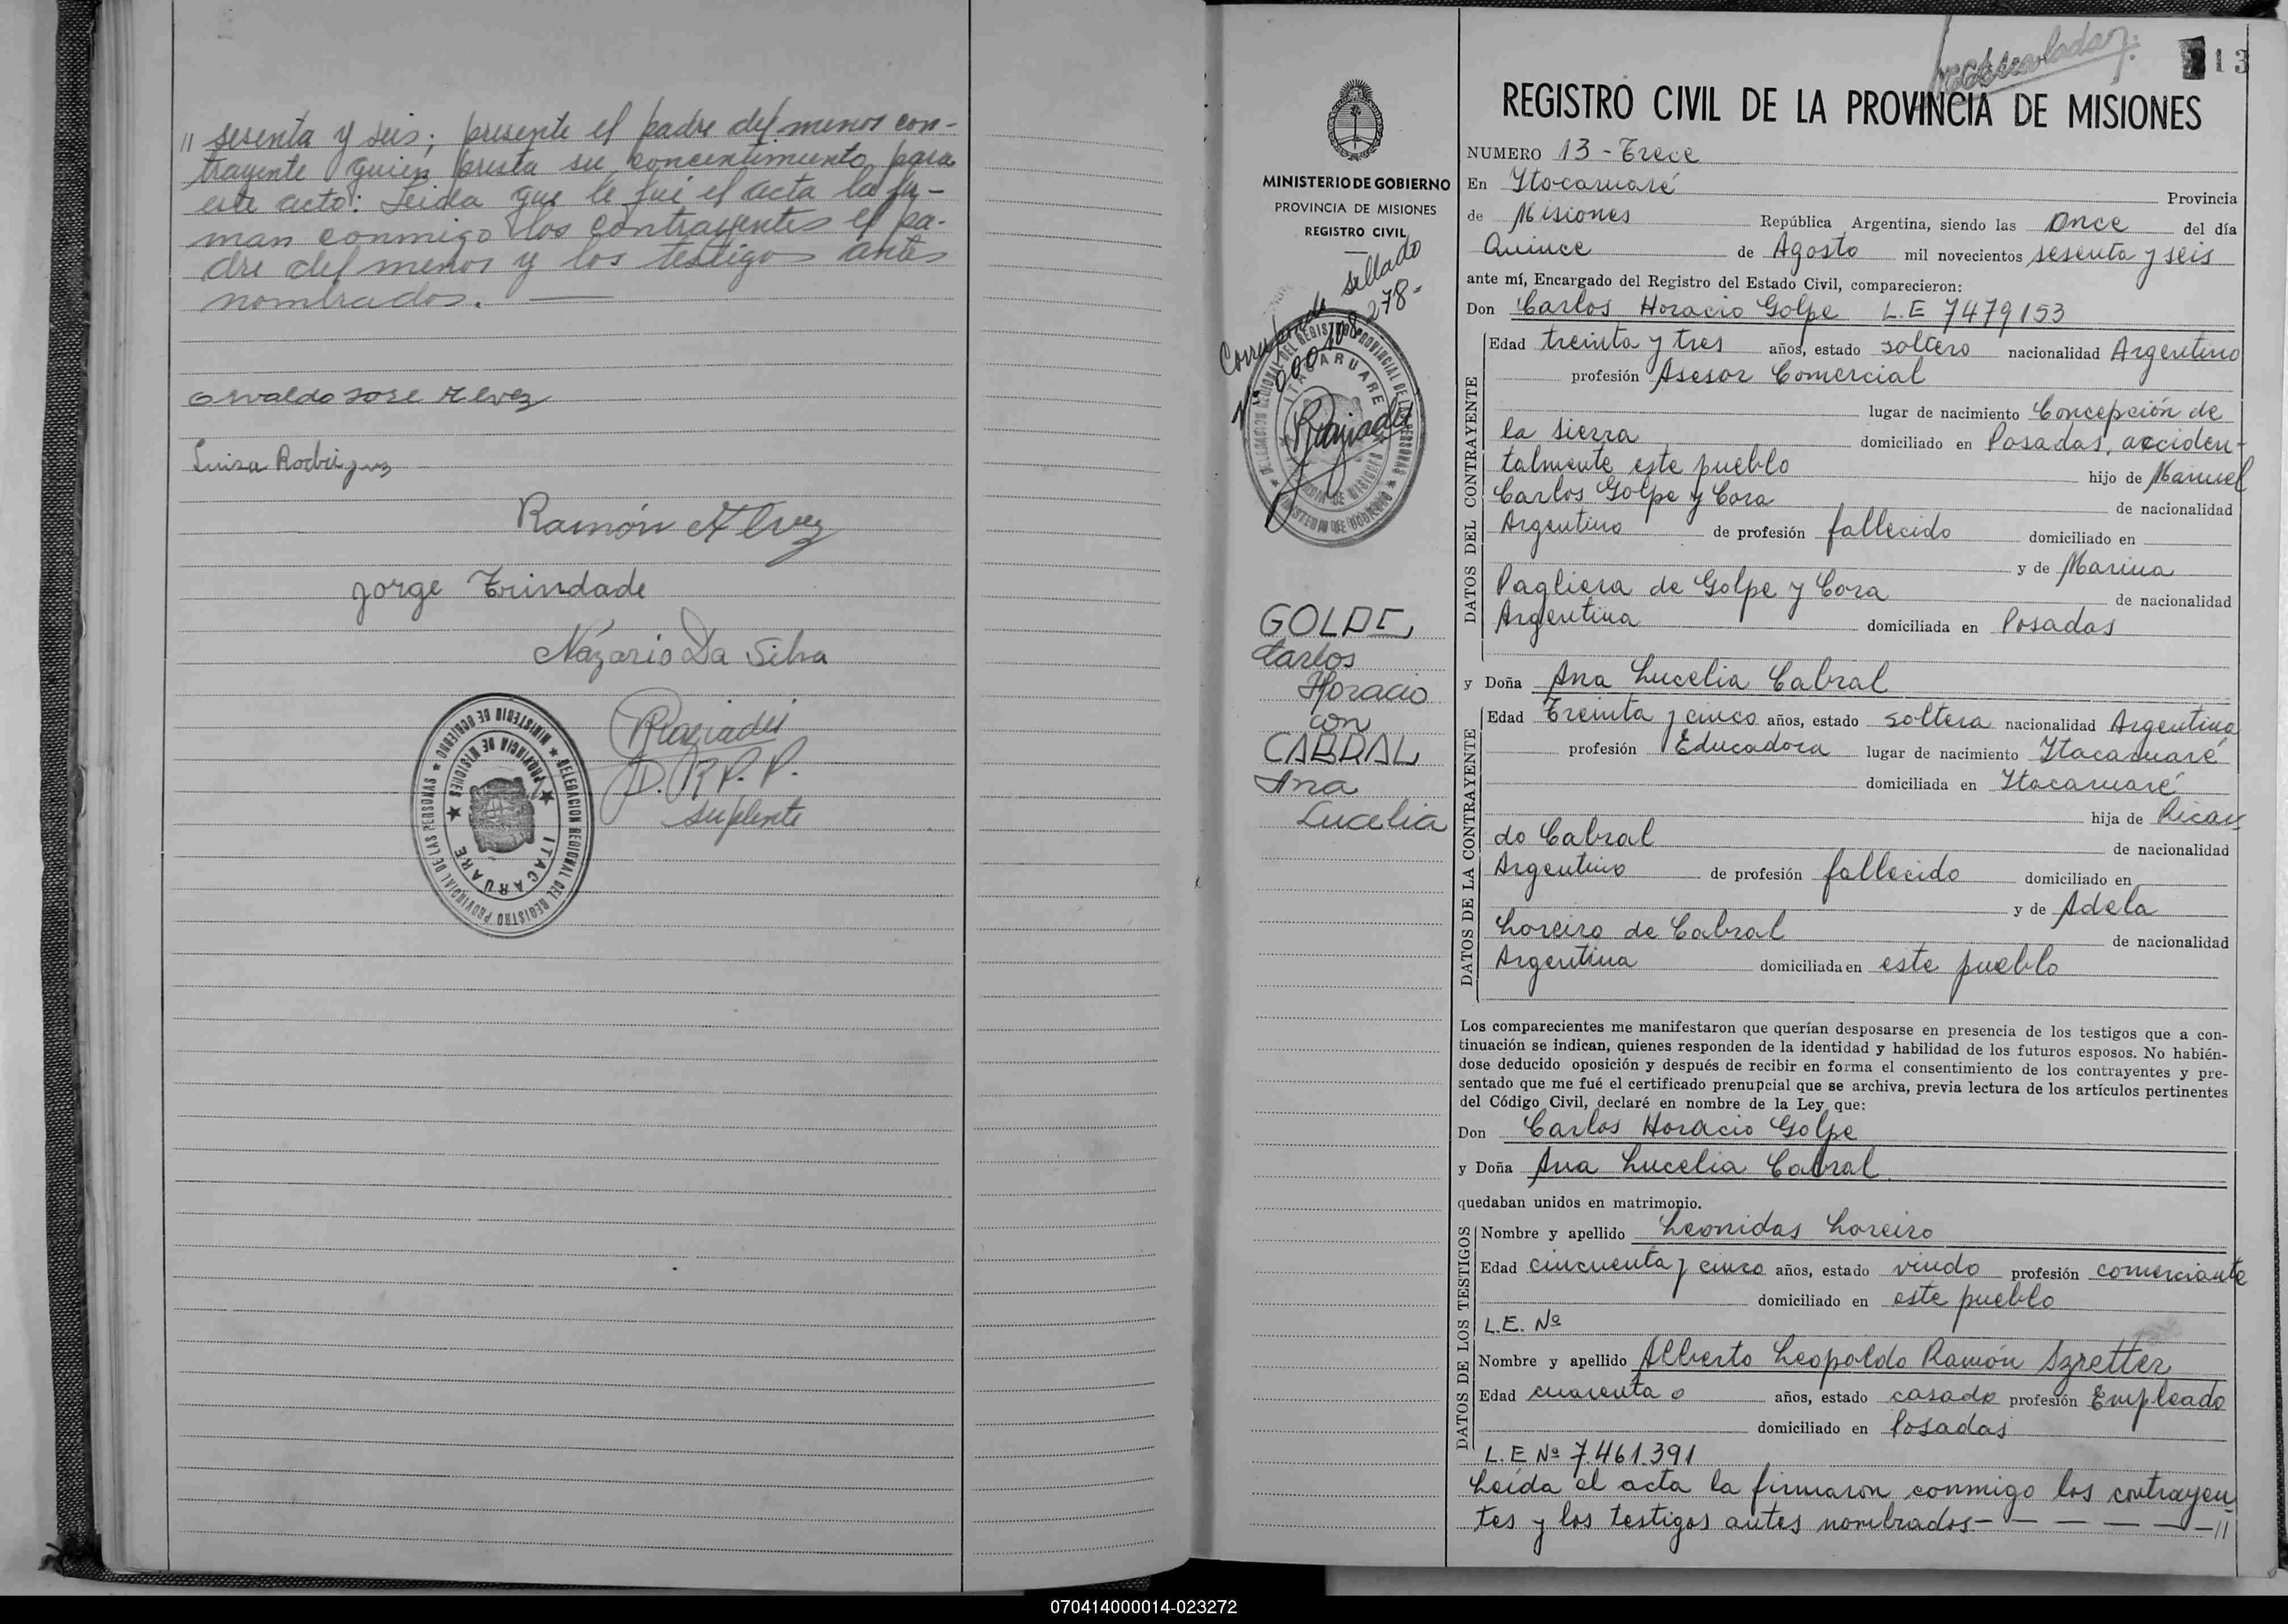 " sesenta y seis; presente el padre del menor con-
trayente quien presta su concentimiento para
este acto: Leida que le fui el acta la fir-
man conmigo los contrayentes el pa-
dre del menor y los testigos antes
nombrados. —
Osvaldo Jose Alvez
Luisa Rodriguez
Ramón Alvez
Jorge Trindade
Nazario Da Silva
D.R.P.P.
suplente
DELEGACION REGIONAL DEL REGISTRO PROVINCIAL DE LAS PERSONAS ★ MINISTERIO DE GOBIERNO ★
ITACARUARE ★ PROVINCIA DE MISIONES ★
MINISTERIO DE GOBIERNO
PROVINCIA DE MISIONES
REGISTRO CIVIL
Corresponde sellado
DELEGACION REGIONAL DEL REGISTRO PROVINCIAL DE LAS PERSONAS ★ MINISTERIO DE GOBIERNO ★
ITACARUARE ★ PROVINCIA DE MISIONES ★
GOLPE,
Carlos
Horacio
con
CABRAL
Ana
Lucelia
13
REGISTRO CIVIL DE LA PROVINCIA DE MISIONES
NUMERO 13 - Trece
En Itacaruaré Provincia
de Misiones República Argentina, siendo las once del día
Quince de Agosto mil novecientos sesenta y seis
ante mí, Encargado del Registro del Estado Civil, comparecieron:
Don Carlos Horacio Golpe L.E 7479153
DATOS DEL CONTRAYENTE
Edad treinta y tres años, estado soltero nacionalidad Argentino
profesión Asesor Comercial
lugar de nacimiento Concepción de
la sierra domiciliado en Posadas, acciden-
talmente este pueblo hijo de Manuel
Carlos Golpe y Cora de nacionalidad
Argentino de profesión fallecido domiciliado en
y de Marina
Pagliera de Golpe y Cora de nacionalidad
Argentina domiciliada en Posadas
y Doña Ana Lucelia Cabral
DATOS DE LA CONTRAYENTE
Edad Treinta y cinco años, estado soltera nacionalidad Argentina
profesión Educadora lugar de nacimiento Itacaruaré
domiciliada en Itacaruaré
hija de Ricar
do Cabral de nacionalidad
Argentino de profesión fallecido domiciliado en
y de Adela
Loreiro de Cabral de nacionalidad
Argentina domiciliada en este pueblo
Los comparecientes me manifestaron que querían desposarse en presencia de los testigos que a con-
tinuación se indican, quienes responden de la identidad y habilidad de los futuros esposos. No habién-
dose deducido oposición y después de recibir en forma el consentimiento de los contrayentes y pre-
sentado que me fué el certificado prenupcial que se archiva, previa lectura de los artículos pertinentes
del Código Civil, declaré en nombre de la Ley que:
Don Carlos Horacio Golpe
y Doña Ana Lucelia Cabral
quedaban unidos en matrimonio.
DATOS DE LOS TESTIGOS
Nombre y apellido Leonidas Loreiro
Edad cincuenta y cinco años, estado viudo profesión comerciante
domiciliado en este pueblo
L.E. Nº
Nombre y apellido Alberto Leopoldo Ramón Szretter
Edad cuarenta o años, estado casado profesión Empleado
domiciliado en Posadas
L.E Nº 7.461.391
Leída el acta la firmaron conmigo los contrayen
tes y los testigos antes nombrados- — — — — — "
070414000014-023272